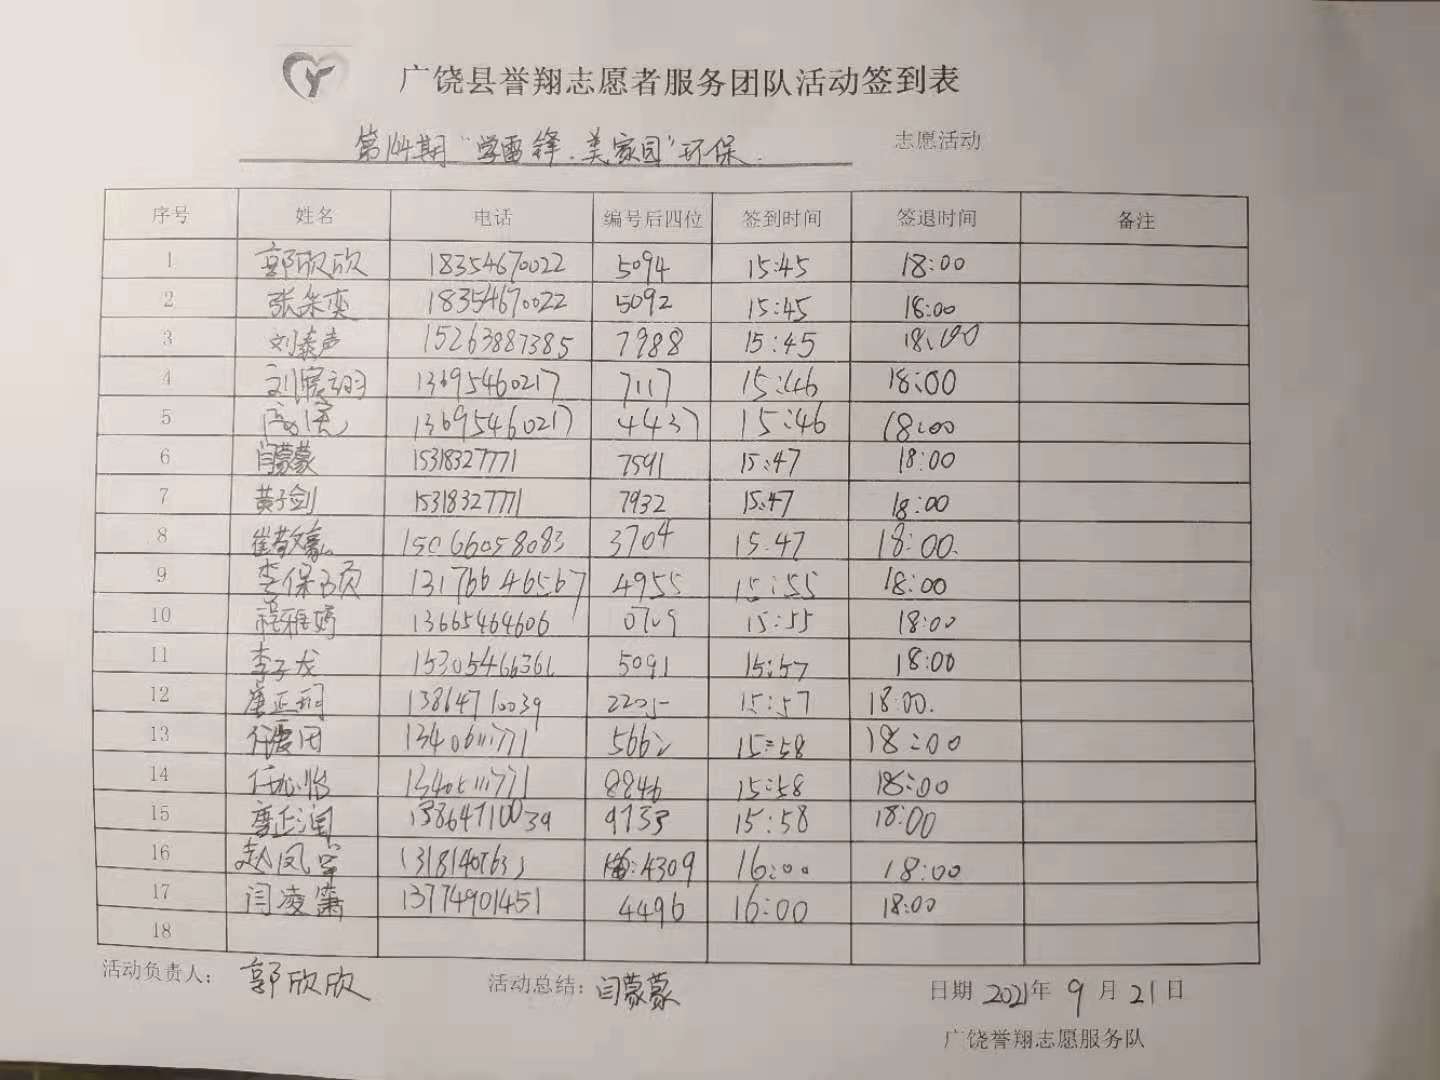 广饶县誉翔志愿者服务团队活动签到表
第144期“学雷锋.美家园”环保. 志愿活动
序号 姓名 电话 编号后四位 签到时间 签退时间 备注
1 郭欣欣 18354670022 5094 15:45 18:00
2 18354670022 5092 15:45 18:00
3 刘泰声 15263887385 7988 15:45 18:00
4 13695460217 7117 15:46 18:00
5 13695460217 4437 15:46 18:00
6 闫蒙蒙 15318327771 7591 15:47 18:00
7 黄子剑 15318327771 7932 15:47 18:00
8 15066058083 3704 15.47 18:00.
9 13176646567 4955 15:55 18:00
10 程雅婷 13665464606 0709 15:55 18:00
11 李子龙 15305466361 5091 15:57 18:00
12 13864710039 2205 15:57 18:00.
13 5662 15:58 18:00
14 8846 15:58 18:00
15 13864710039 9733 15:58 18:00
16 4309 16:00 18:00
17 闫凌箫 13774901451 4496 16:00 18:00
18
活动负责人: 郭欣欣 活动总结: 闫蒙蒙 日期 2021年 9 月 21 日
广饶誉翔志愿服务队